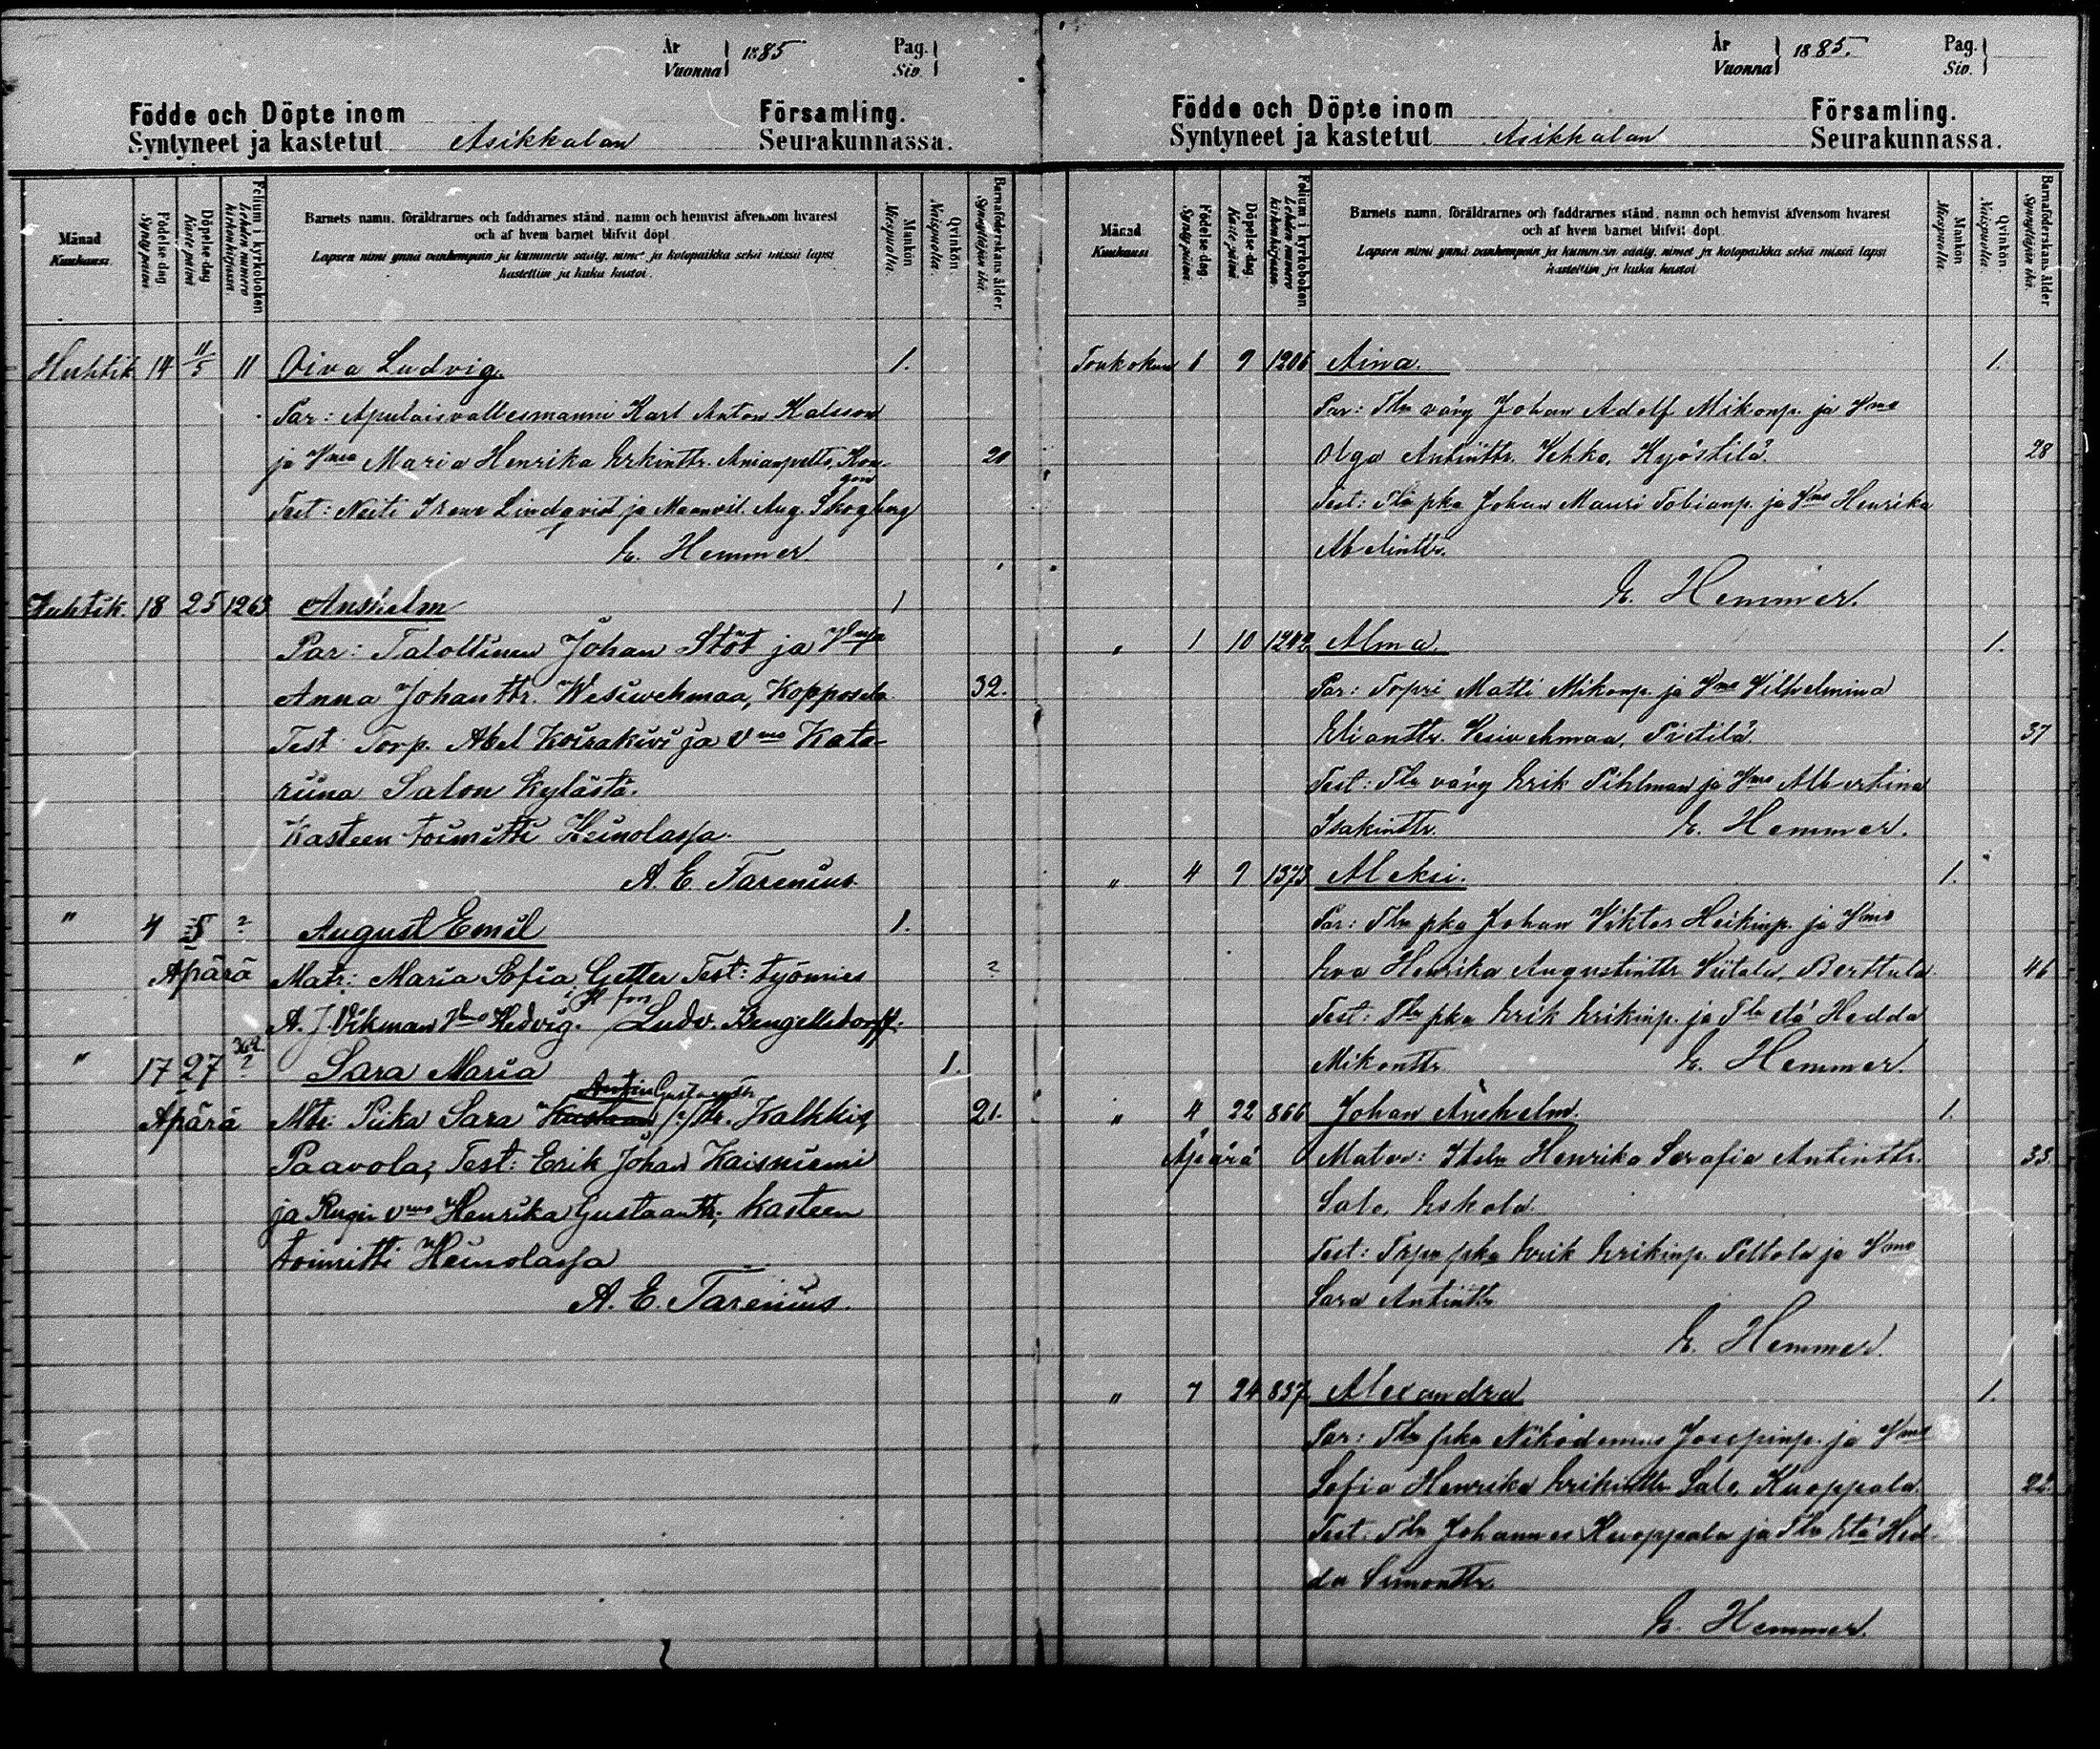 År
Vuonna } 1885 Pag.
Siv. }
Födde och Döpte inom Församling.
Syntyneet ja kastetut Asikkalan Seurakunnassa.
Månad
Kuukausi.
Födelse dag
Syntypäivä
Döpelse dag
Kastepäivä
Folium i kyrkoboken
Lehden numero kirkonkirjassa.
Barnets namn, föräldrarnes och faddrarnes stånd, namn och hemvist äfvensom hvarest
och af hvem barnet blifvit döpt.
Lapsen nimi ynnä vanhempain ja kummein sääty, nimet ja kotopaikka sekä missä lapsi
kastettiin ja kuka kastoi.
Mankön
Miespuolia.
Qvinkön
Naispuolia.
Barnaföderskans ålder.
Synnyttäjän ikä.
Huhtik 14 11/5 11 Oiva Ludvig. 1.
Par: Apulaisvallesmanni Karl Anton
ja Vmo Maria Henrika Erkintr. 20
Test: Neiti Lindqvist ja Aug. Skogberg
E. Hemmer
Huhtik. 18 25 1263 Anshelm 1
Par: Talollinen Johan Stöt ja
Anna Johanttr. Wesiwehmaa, 32.
Test Torp. Abel Koirakivi ja Vmo Kata-
riina Salon kylästä.
Kasteen toimitti Heinolassa
A. E. Tarenius
" 4 5 ? August Emil 1.
Äpärä Matr: Maria Sofia Getter Test: työmies ?
A. J. Vikman Vmo Hedvig. Ludv. Bengelsdorff.
" 17 27 ? Sara Maria 1.
Äpärä Mtr. Piika Sara Gustaantr Kalkkis 21.
Paavola; Test: Erik Johan Kaisniemi
ja Vmo Henrika Gustaantr; kasteen
toimitti Heinolassa
A. E. Tarenius.
År
Vuonna } 1885. Pag.
Siv. }
Födde och Döpte inom Församling.
Syntyneet ja kastetut Asikkalan Seurakunnassa.
Månad
Kuukausi.
Födelse dag.
Syntypäivä.
Döpelse dag.
Kastepäivä.
Folium i kyrkoboken.
Lehden numero kirkonkirjassa.
Barnets namn, föräldrarnes och faddrarnes stånd, namn och hemvist äfvensom hvarest
och af hvem barnet blifvit döpt.
Lapsen nimi ynnä vanhempain ja kummein sääty, nimet ja kotopaikka sekä missä lapsi
kastettiin ja kuka kastoi.
Mankön
Miespuolia
Qvinkön.
Naispuolia.
Barnaföderskans ålder.
Synnyttäjän ikä.
Toukokuu 1 9 1206 Aina. 1.
Par: Tln vävy Johan Adolf Mikonp. ja Vmo
Olga Antinttr. Vehko, Kyöstilä. 28
Test: Tln pka Johan Mauri Tobianp. ja Vmo Henrika
Abelinttr.
E. Hemmer.
" 1 10 1242 Alma. 1.
Par: Torpri Matti Mikonp. ja Vmo Vilhelmina
Elianttr. Vesivehmaa, Pietilä. 37
Test: Tln vävy Erik Pihlman ja Vmo Albertina
Isakinttr. E. Hemmer.
" 4 9 1373 Aleksi. 1.
Par: Tln pka Johan Viktor Heikinp. ja Vmo
Eva Henrika Augustinttr Viitala, Berttula 46
Test: Tln pka Erik Erikinp. ja Tln etä Hedda
Mikonttr. E. Hemmer.
" 4 22 866 Johan Anshelm. 1.
Äpärä Mater: Itseln Henrika Serafia Antinttr. 33.
Salo, Eskola.
Test: Trpn pka Erik Erikinp. Peltola ja Vmo
Sara Antinttr.
E. Hemmer.
" 7 24 837 Alexandra 1.
Par: Tln pka Nikodemus Josepinp. ja Vmo
Sofia Henrika Erikinttr Salo, Kuoppala. 22.
Test. Tln Johannes Kuoppala ja Tln Etä Hed-
da Simonttr.
E. Hemmer.